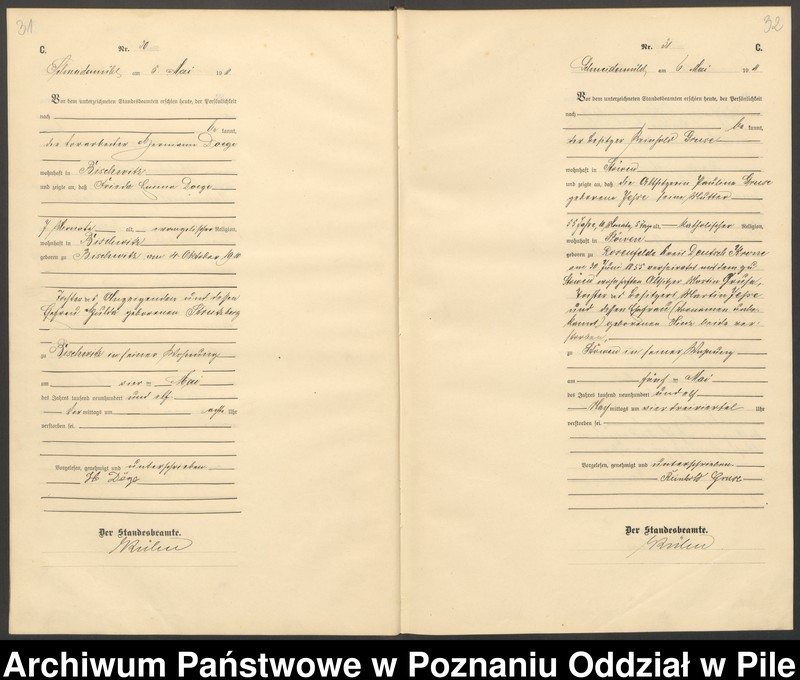 31
C.
Nr. 30
am 5 Mai 19
Vor dem unterzeichneten Standesbeamten erschien heute, der Persönlichkeit
nach
be kannt,
der Vorarbeiter Hermann Doege
wohnhaft in Bischwitz
und zeigte an, daß Frieda Emma Doege
7 Monate alt, evangelischer Religion,
wohnhaft in Bischwitz
geboren zu Bischwitz am 4 Oktober 1910
Tochter des Angezeigenden und dessen
Ehefrau Hulda geborenen
zu Bischwitz in seiner Wohnung
am vier = Mai
des Jahres tausend neunhundert und elf
Vor mittags um acht Uhr
verstorben sei.
Vorgelesen, genehmigt und unterschrieben
H Döge
Der Standesbeamte.
32
Nr. 31
C.
Schneidemühl, am 6 Mai 19
Vor dem unterzeichneten Standesbeamten erschien heute, der Persönlichkeit
nach
be kannt,
der Besitzer Reinhold Gruse
wohnhaft in Stöwen
und zeigte an, daß die Altsitzerin Pauline Gruse
geborene Jesse seine Mutter
55 Jahre, 10 Monate, 5 Tage alt, katholischer Religion,
wohnhaft in Stöwen
geboren zu Rosenfelde Kreis Deutsch Krone
am 30 Juni 1855 verheiratet mit dem zu
Stöwen Altsitzer Martin Gruse,
Tochter des Besitzers Martin Jesse
und dessen Ehefrau (Vornamen unbe-
kannt) geborenen beide ver-
storben,
zu Stöwen in seiner Wohnung
am fünf = Mai
des Jahres tausend neunhundert und elf
Nach mittags um vierdreiviertel Uhr
verstorben sei.
Vorgelesen, genehmigt und unterschrieben
Reinhold Gruse
Der Standesbeamte.
Archiwum Państwowe w Poznaniu Oddział w Pile